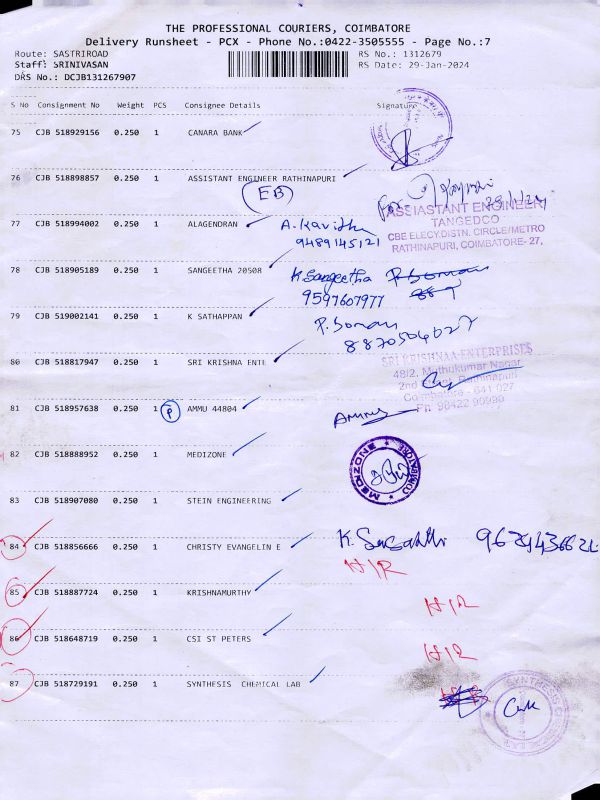 THE PROFESSIONAL COURIERS, COIMBATORE
Delivery Runsheet - PCX - Phone No.:0422-3505555 - Page No.:7
Route: SASTRIROAD
RS No.: 1312679
Staff: SRINIVASAN
RS Date: 29-Jan-2024
DRS No.: DCJB131267907
S No Consignment No Weight PCS Consignee Details Signature
75 CJB 518929156 0.250 1 CANARA BANK
76 CJB 518898857 0.250 1 ASSISTANT ENGINEER RATHINAPURI
EB
ASSIASTANT ENGINEER
TANGEDCO
CBE ELECY.DISTN. CIRCLE/METRO
RATHINAPURI, COIMBATORE- 27,
77 CJB 518994002 0.250 1 ALAGENDRAN A. Kavitha
9489145121
78 CJB 518905189 0.250 1 SANGEETHA 20508 K Sangeetha
9597607977
79 CJB 519002141 0.250 1 K SATHAPPAN P. Soman
8870504027
80 CJB 518817947 0.250 1 SRI KRISHNA ENTE
SRI KRISHNAA ENTERPRISES
48/2, Muthukumar Nagar
2nd Street, Rathinapuri
Coimbatore - 641 027
Ph: 98422 90980
81 CJB 518957638 0.250 1 P AMMU 44804 Ammu
82 CJB 518888952 0.250 1 MEDIZONE
MEDIZONE COIMBATORE
83 CJB 518907080 0.250 1 STEIN ENGINEERING
84 CJB 518856666 0.250 1 CHRISTY EVANGELIN E
H/R
85 CJB 518887724 0.250 1 KRISHNAMURTHY
H/R
86 CJB 518648719 0.250 1 CSI ST PETERS
H/R
87 CJB 518729191 0.250 1 SYNTHESIS CHEMICAL LAB